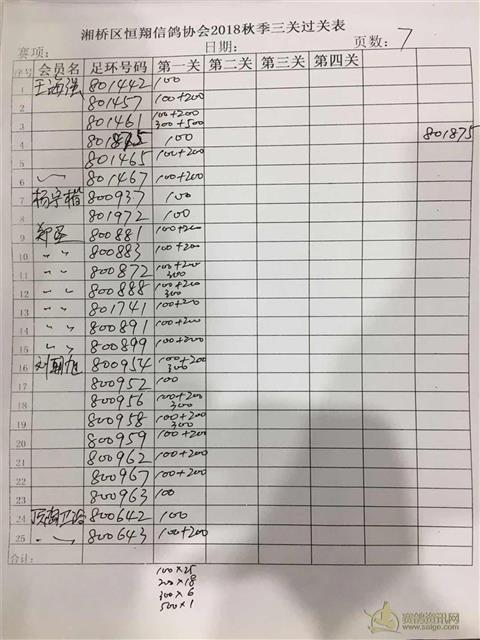 湘桥区恒翔信鸽协会2018秋季三关过关表
赛项: 日期: 页数: 7
序号 会员名 足环号码 第一关 第二关 第三关 第四关
1 王海强 801442 100
2 801457 100+200
3 801461 100+200 300+500
4 100 801875
5 801465 100+200
6 〃 801467 100+200
7 800937 100
8 801972 100
9 800881 100+200
10 〃 〃 800883 100+200
11 〃 〃 800872 100+200 300
12 〃 〃 800888 100+200 300
13 〃 〃 801741 100+200
14 〃 〃 800891 100+200
15 〃 〃 800899 100+200
16 刘朝旭 800954 100+200 300
17 800952 100
18 800956 100+200 300
19 800958 100+200 300
20 800959 100+200
21 800962 100+200
22 800967 100+200
23 800963 100
24 800642 100
25 〃 800643 100+200
合计:
100×25
200×18
300×6
500×1
赛鸽资讯网
www.saige.com